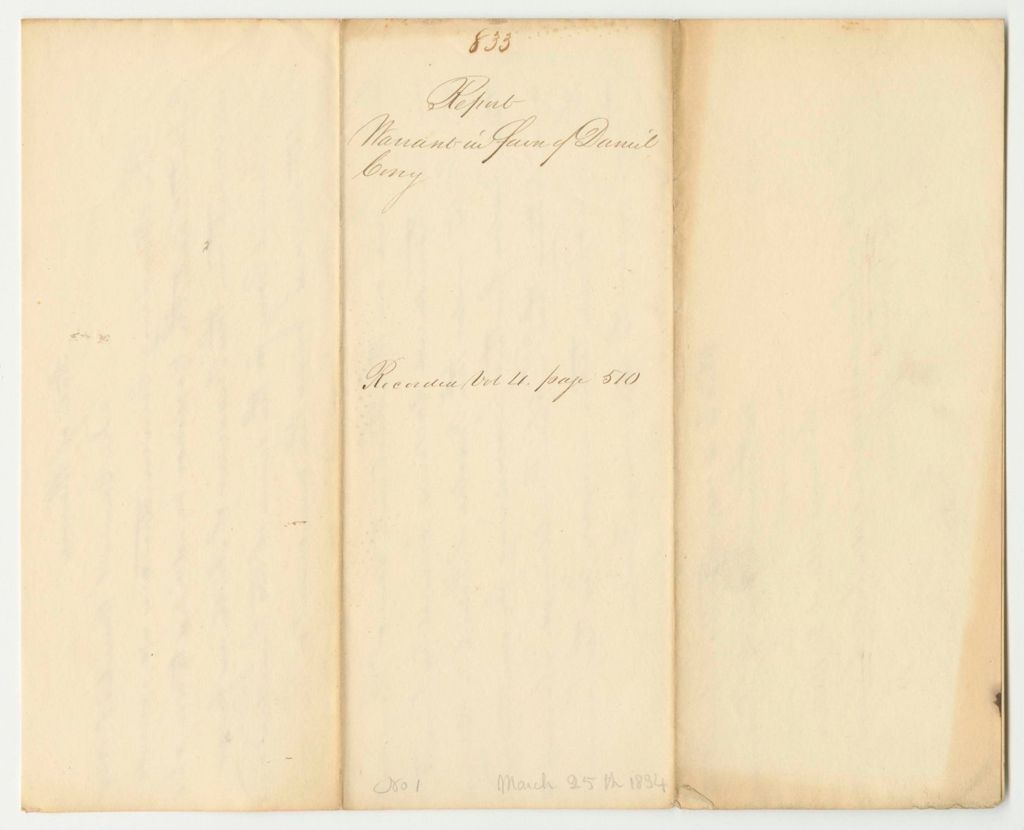 833
Report
Warrant in favor of Daniel
Cony
Recorded Vol 4. page 510
No 1 March 25th 1834